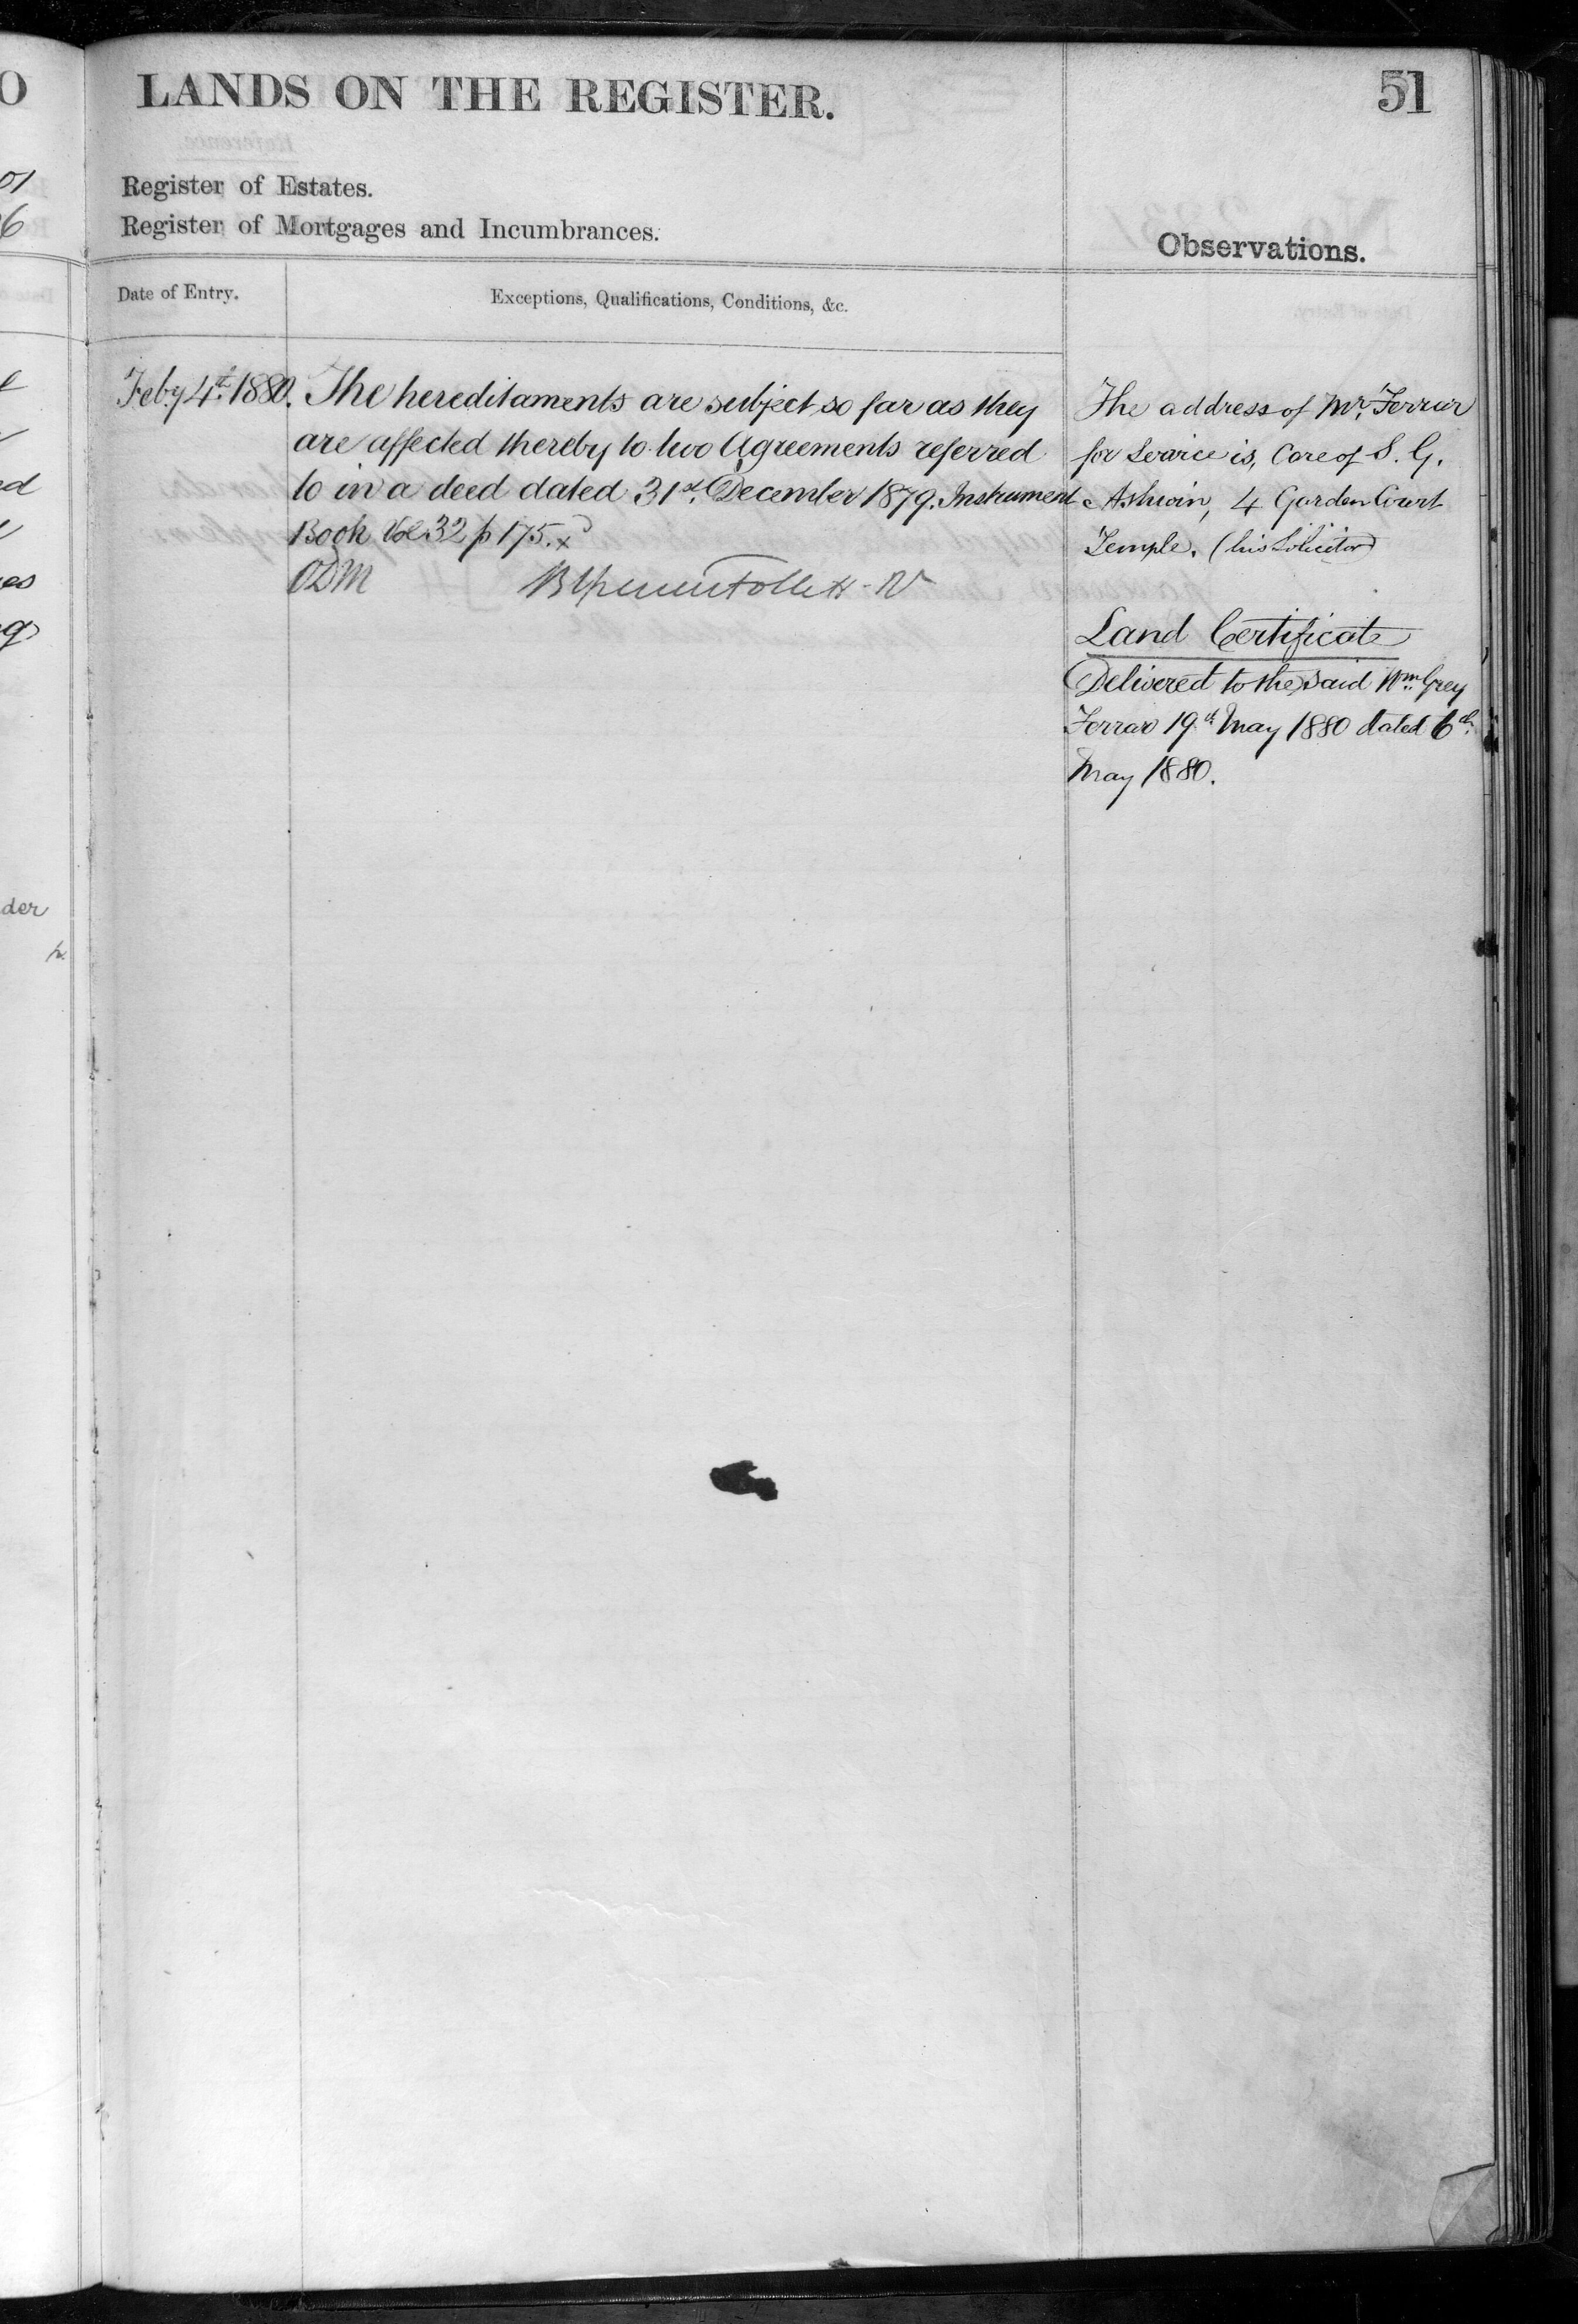 LANDS ON THE REGISTER.
51
Register of Estates.
Register of Mortgages and Incumbrances.
Observations.
Date of Entry.
Exceptions, Qualifications, Conditions, &c.
Feby 4th 1880. The hereditaments are subject so far as they
are affected thereby to two Agreements referred
to in a deed dated 31st December 1879. Instrument
Book Vol 32 p 175. x
ODM
Follett
The address of Mr. Ferrar
for Service is, Care of S. G.
Ashwin, 4 Garden Court
Temple. (his Solicitor)
Land Certificate
Delivered to the said Wm Grey
Ferrar 19th May 1880 dated 6th
May 1880.